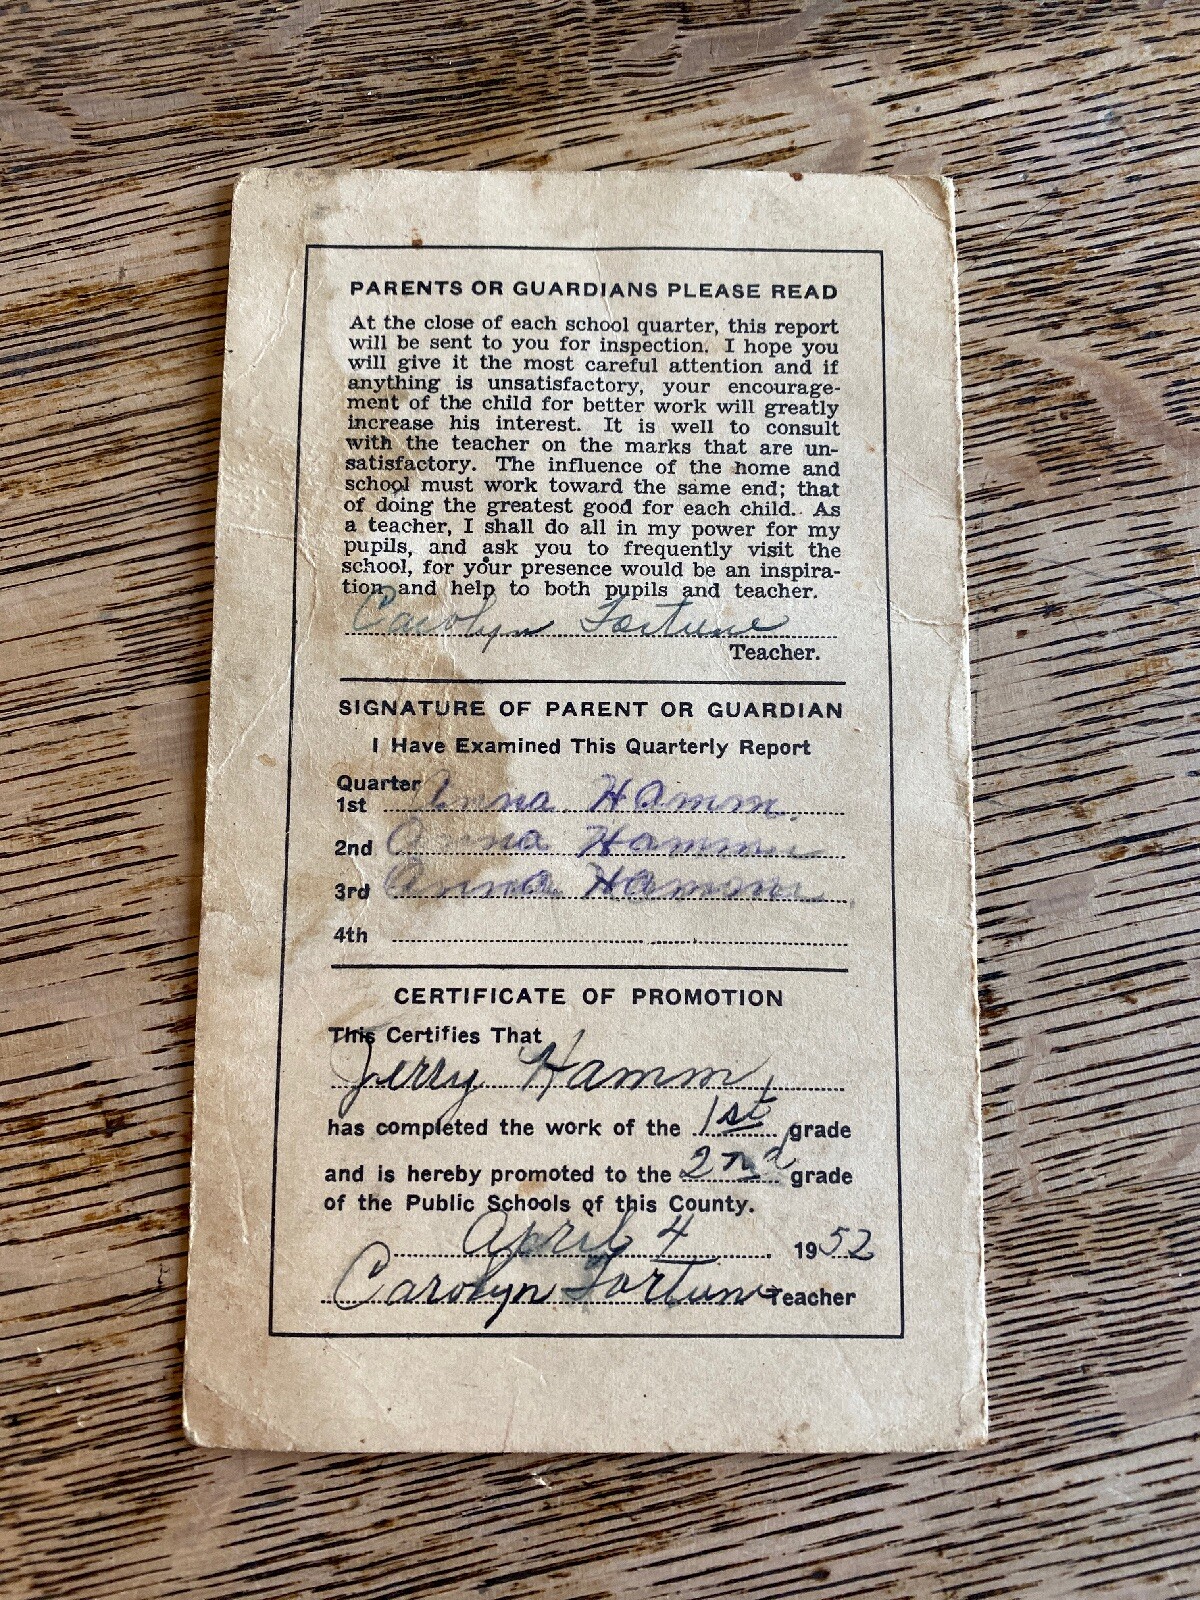 PARENTS OR GUARDIANS PLEASE READ
At the close of each school quarter, this report
will be sent to you for inspection. I hope you
will give it the most careful attention and if
anything is unsatisfactory, your encourage-
ment of the child for better work will greatly
increase his interest. It is well to consult
with the teacher on the marks that are un-
satisfactory. The influence of the home and
school must work toward the same end; that
of doing the greatest good for each child. As
a teacher, I shall do all in my power for my
pupils, and ask you to frequently visit the
school, for your presence would be an inspira-
tion and help to both pupils and teacher.
Carolyn Fortune
Teacher.
SIGNATURE OF PARENT OR GUARDIAN
I Have Examined This Quarterly Report
Quarter
1st Anna Hamm
2nd Anna Hamm
3rd Anna Hamm
4th
CERTIFICATE OF PROMOTION
This Certifies That
Jerry Hamm
has completed the work of the 1st grade
and is hereby promoted to the 2nd grade
of the Public Schools of this County.
April 4 1952
Carolyn Fortune Teacher